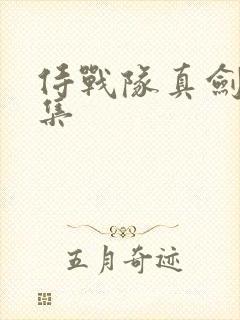 侍戰隊真劍
集
五月奇迹